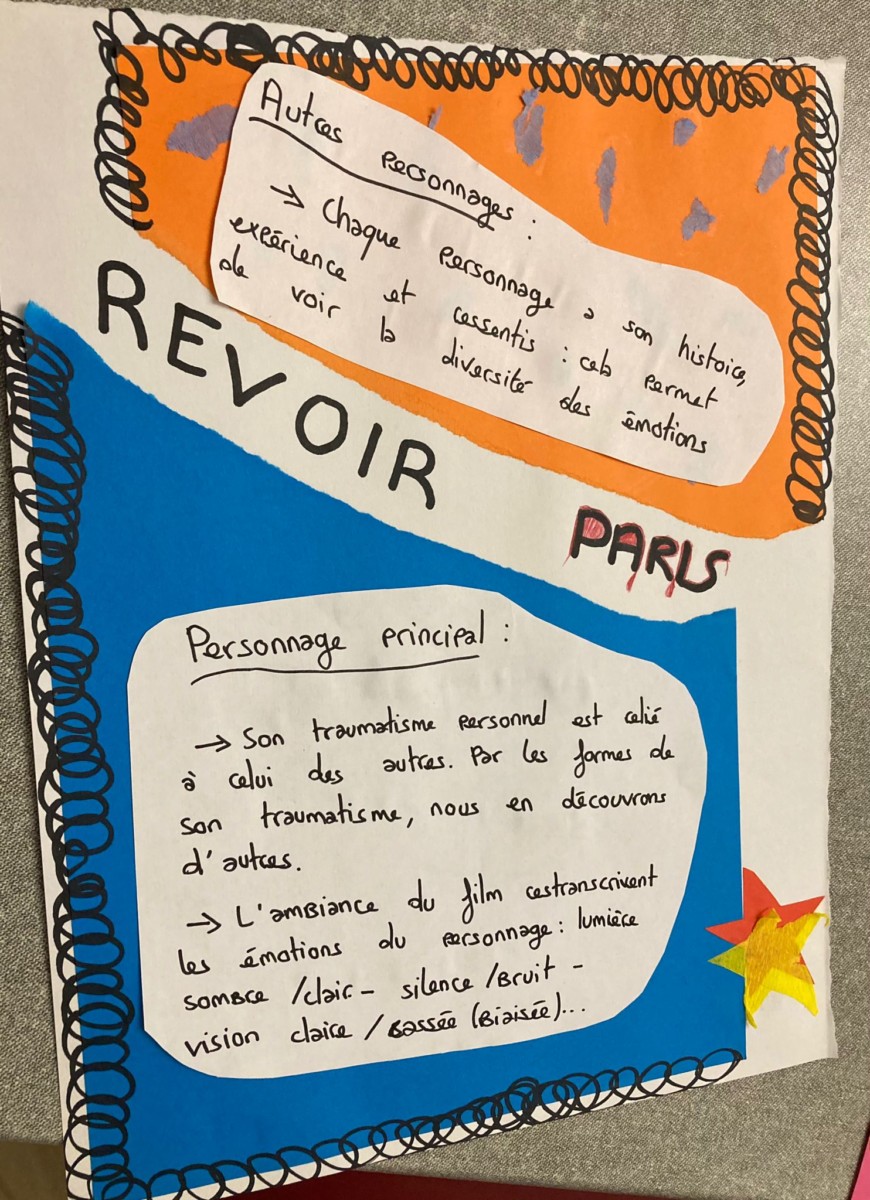 Autres personnages :
→ Chaque personnage a son histoire,
expérience et ressentis : cela permet
de voir la diversité des émotions
REVOIR
PARIS
Personnage principal :
→ Son traumatisme personnel est relié
à celui des autres. Par les formes de
son traumatisme, nous en découvrons
d'autres.
→ L'ambiance du film restranscrivent
les émotions du personnage : lumière
sombre / clair - silence / Bruit -
vision claire / Bassée (Biaisée)...